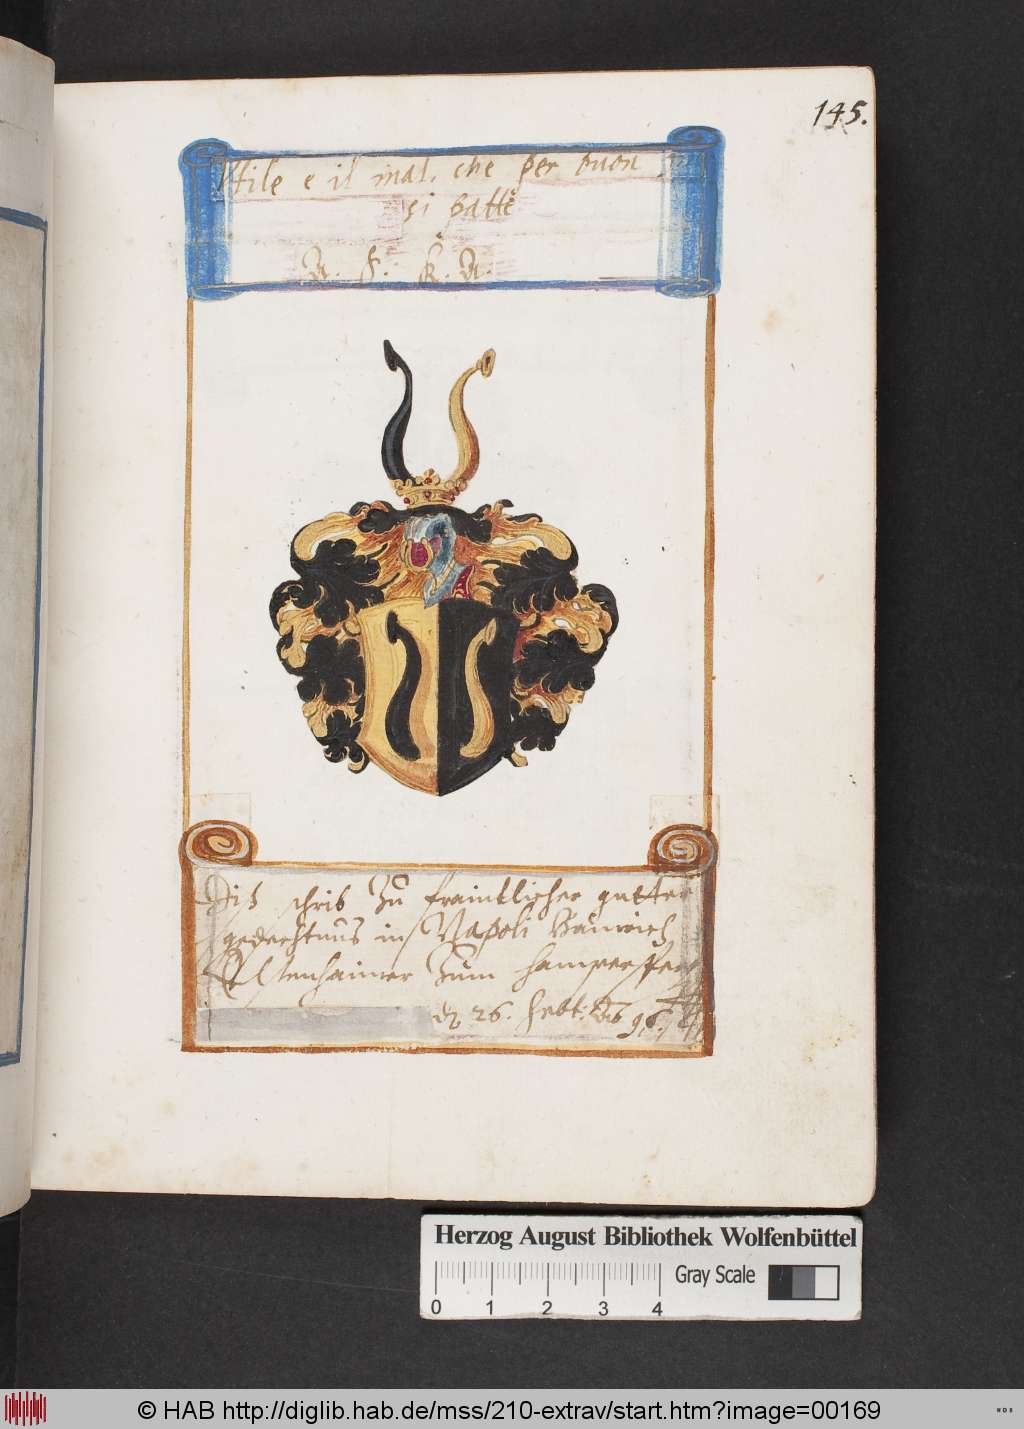 145.
Vtile e il mal, che per buon
si batte
A. F. K. A.
Diß schrib Zu fraintlicher gutter
gedechtnus in Napoli
Zum
26. Febr: A° 96.
Herzog August Bibliothek Wolfenbüttel
Gray Scale
0 1 2 3 4
© HAB http://diglib.hab.de/mss/210-extrav/start.htm?image=00169